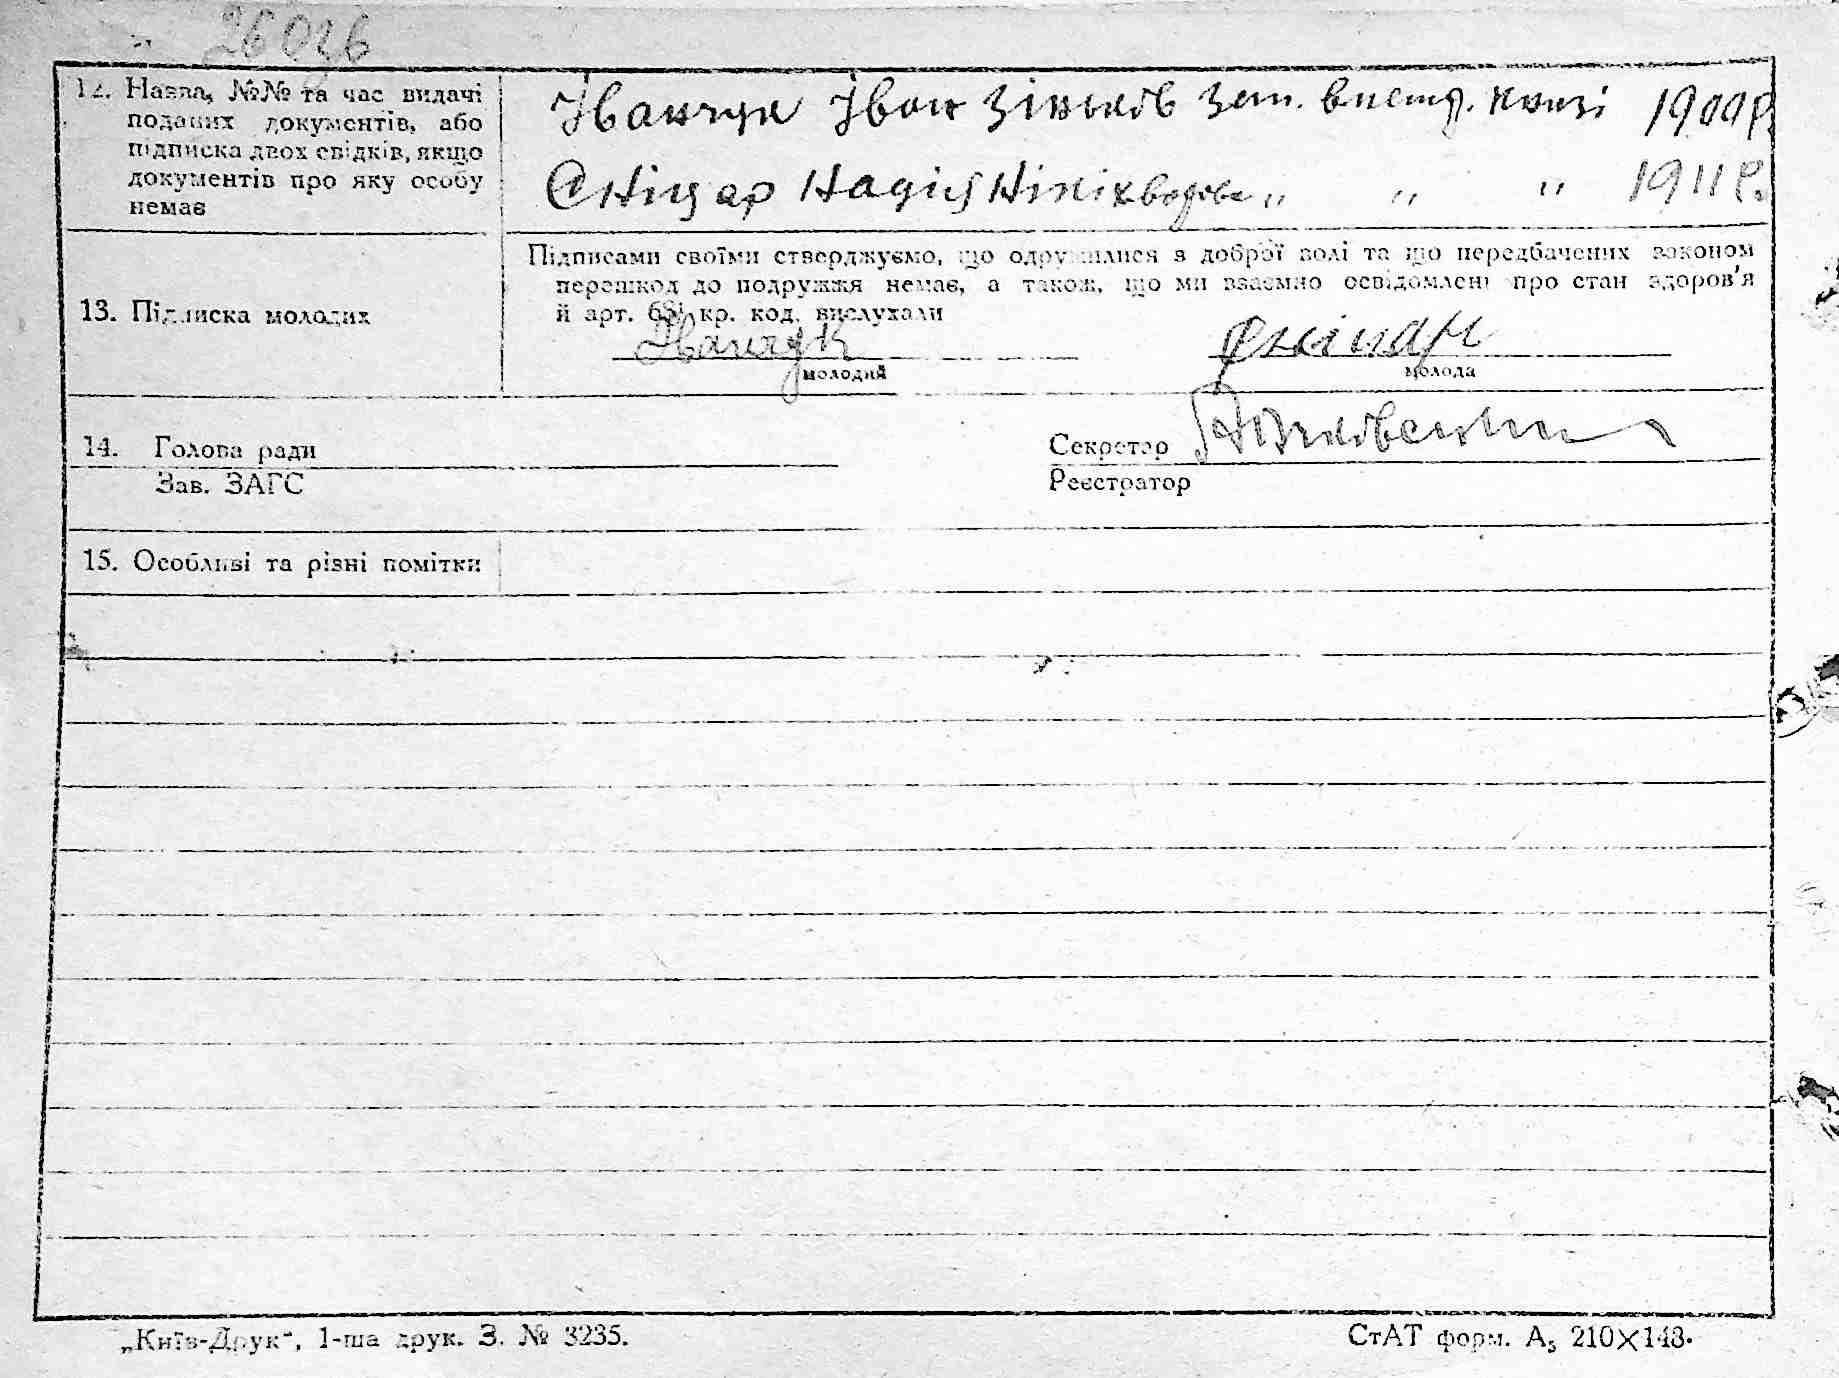 12. Назва, №№ та час видачі
поданих документів, або
підписка двох свідків, якщо
документів про яку особу
немає
Іванчук Іван Зіньків Зап. в метр. книзі 1900 р.
Сніцар Надія „ „ „ 1911 р.
13. Підписка молодих
Підписами своїми стверджуємо, що одружилися з доброї волі та що передбачених законом
перешкод до подружжя немає, а також, що ми взаємно освідомлені про стан здоров'я
й арт. 68 кр. код. вислухали
Іванчук Сніцар
молодий молода
14. Голова ради Секретар
Зав. ЗАГС Реєстратор
15. Особливі та різні помітки
„Київ-Друк“, 1-ша друк. З. № 3235. СтАТ форм. А₅ 210×148.